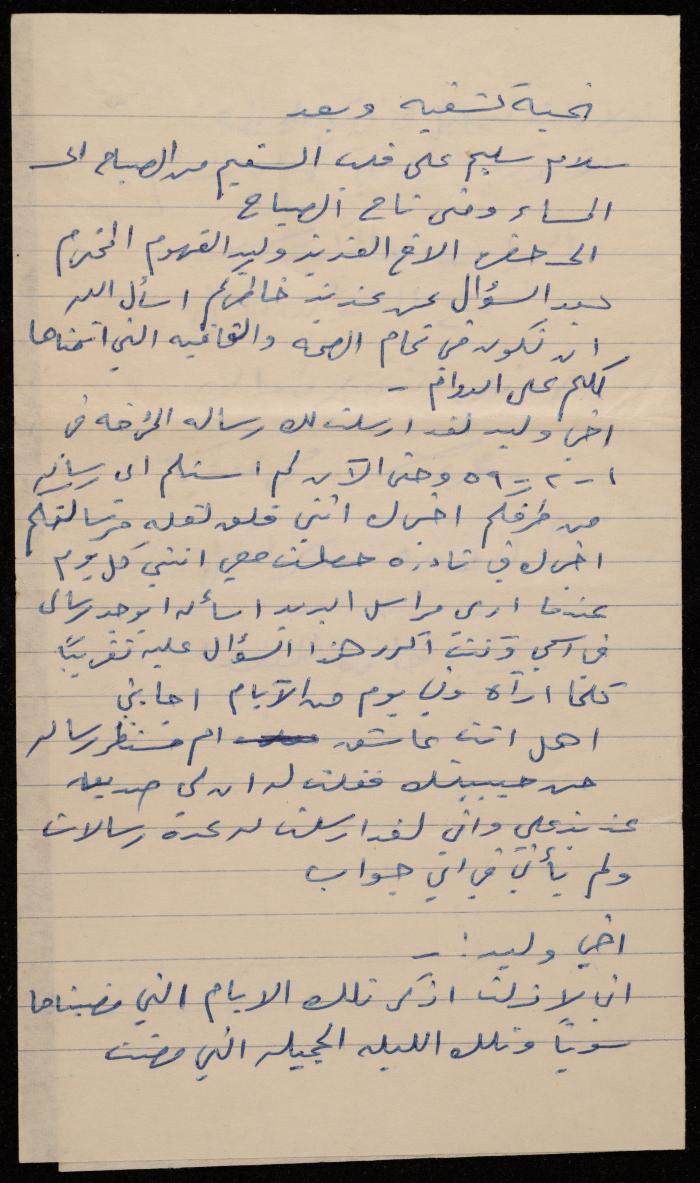 تحية شفيه وبعد
سلام سليم على قلب السقيم من الصباح الى
المساء ومتى تاح الصياح
الى حضرة الاخ العزيز وليد القهوم المحترم
بعد السؤال عن عزيز خاطركم اسأل الله
ان تكون في تمام الصحه والعافيه التي اتمناها
لكم على الدوام -
اخي وليد لقد ارسلت لك رساله المؤرخه في
١-٢-٥٩ وحتى الآن لم استلم اي رساله
من طرفكم اخبرك انني قلق لقلة مرسالتكم
اخبرك في نادره حصلت معي انني كل يوم
عندما ارى مراسل البريد اسأله ايوجد رساله
في اسمي وكنت اكرر هذا السؤال عليه تقريباً
كلما اراه وفي يوم من الآيام اجابني
اهل انت عاشق ام منتظر رساله
من حبيبتك فقلت له ان لي صديق
عزيز علي واني لقد ارسلت له عدة رسالات
ولم يأتيني اي جواب
اخي وليد : -
اني لا زلت اذكر تلك الايام التي قضيناها
سوياً وتلك الليله الجميله التي مضت